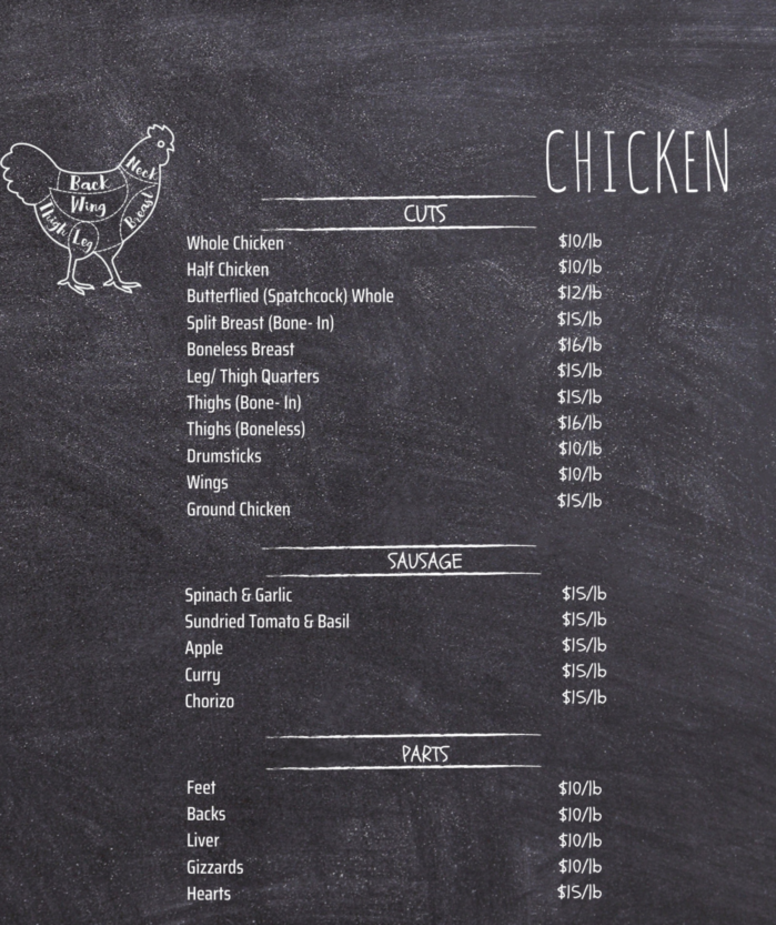 CHICKEN
Neck
Back
Wing
Breast
Thigh
Leg
CUTS
Whole Chicken $10/lb
Half Chicken $10/lb
Butterflied (Spatchcock) Whole $12/lb
Split Breast (Bone- In) $15/lb
Boneless Breast $16/lb
Leg/ Thigh Quarters $15/lb
Thighs (Bone- In) $15/lb
Thighs (Boneless) $16/lb
Drumsticks $10/lb
Wings $10/lb
Ground Chicken $15/lb
SAUSAGE
Spinach & Garlic $15/lb
Sundried Tomato & Basil $15/lb
Apple $15/lb
Curry $15/lb
Chorizo $15/lb
PARTS
Feet $10/lb
Backs $10/lb
Liver $10/lb
Gizzards $10/lb
Hearts $15/lb